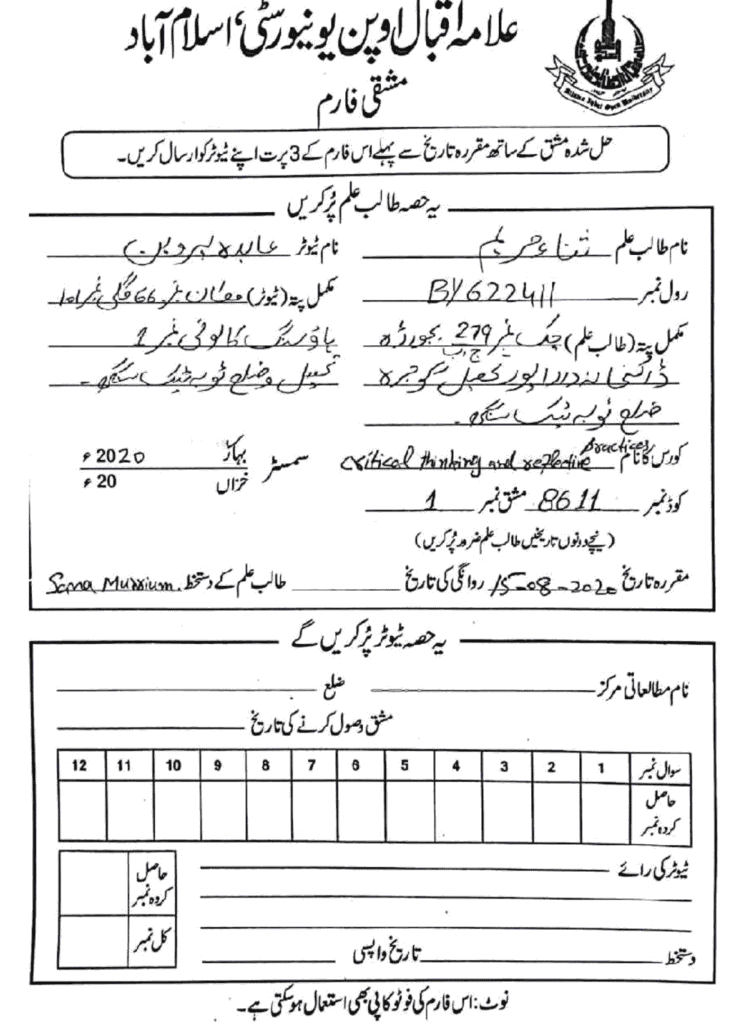 علامہ اقبال اوپن یونیورسٹی، اسلام آباد
Allama Iqbal Open University
مشقی فارم
حل شدہ مشق کے ساتھ مقررہ تاریخ سے پہلے اس فارم کے 3 پرت اپنے ٹیوٹر کو ارسال کریں۔
یہ حصہ طالب علم پُر کریں
نام طالب علم ثناء حریم نام ٹیوٹر عابدہ پروین
رول نمبر BY622411 مکمل پتہ (ٹیوٹر) مکان نمبر 66 گلی نمبر
مکمل پتہ (طالب علم) چک نمبر 279 ج ب ہاؤسنگ کالونی نمبر 1
تحصیل گوجرہ تحصیل و ضلع ٹوبہ ٹیک سنگھ۔
ضلع ٹوبہ ٹیک سنگھ۔
کورس کا نام critical thinking and reflective practices سمسٹر بہار 2020ء
خزاں 20ء
کوڈ نمبر 8611 مشق نمبر 1
(نیچے دونوں تاریخیں طالب علم ضرور پُر کریں)
مقررہ تاریخ 15-08-2020 روانگی کی تاریخ طالب علم کے دستخط Sana Murrium.
یہ حصہ ٹیوٹر پُر کریں گے
نام مطالعاتی مرکز ضلع
مشق وصول کرنے کی تاریخ
سوال نمبر 1 2 3 4 5 6 7 8 9 10 11 12
حاصل کردہ نمبر
ٹیوٹر کی رائے
حاصل کردہ نمبر
کل نمبر
دستخط تاریخ واپسی
نوٹ: اس فارم کی فوٹو کاپی بھی استعمال ہو سکتی ہے۔